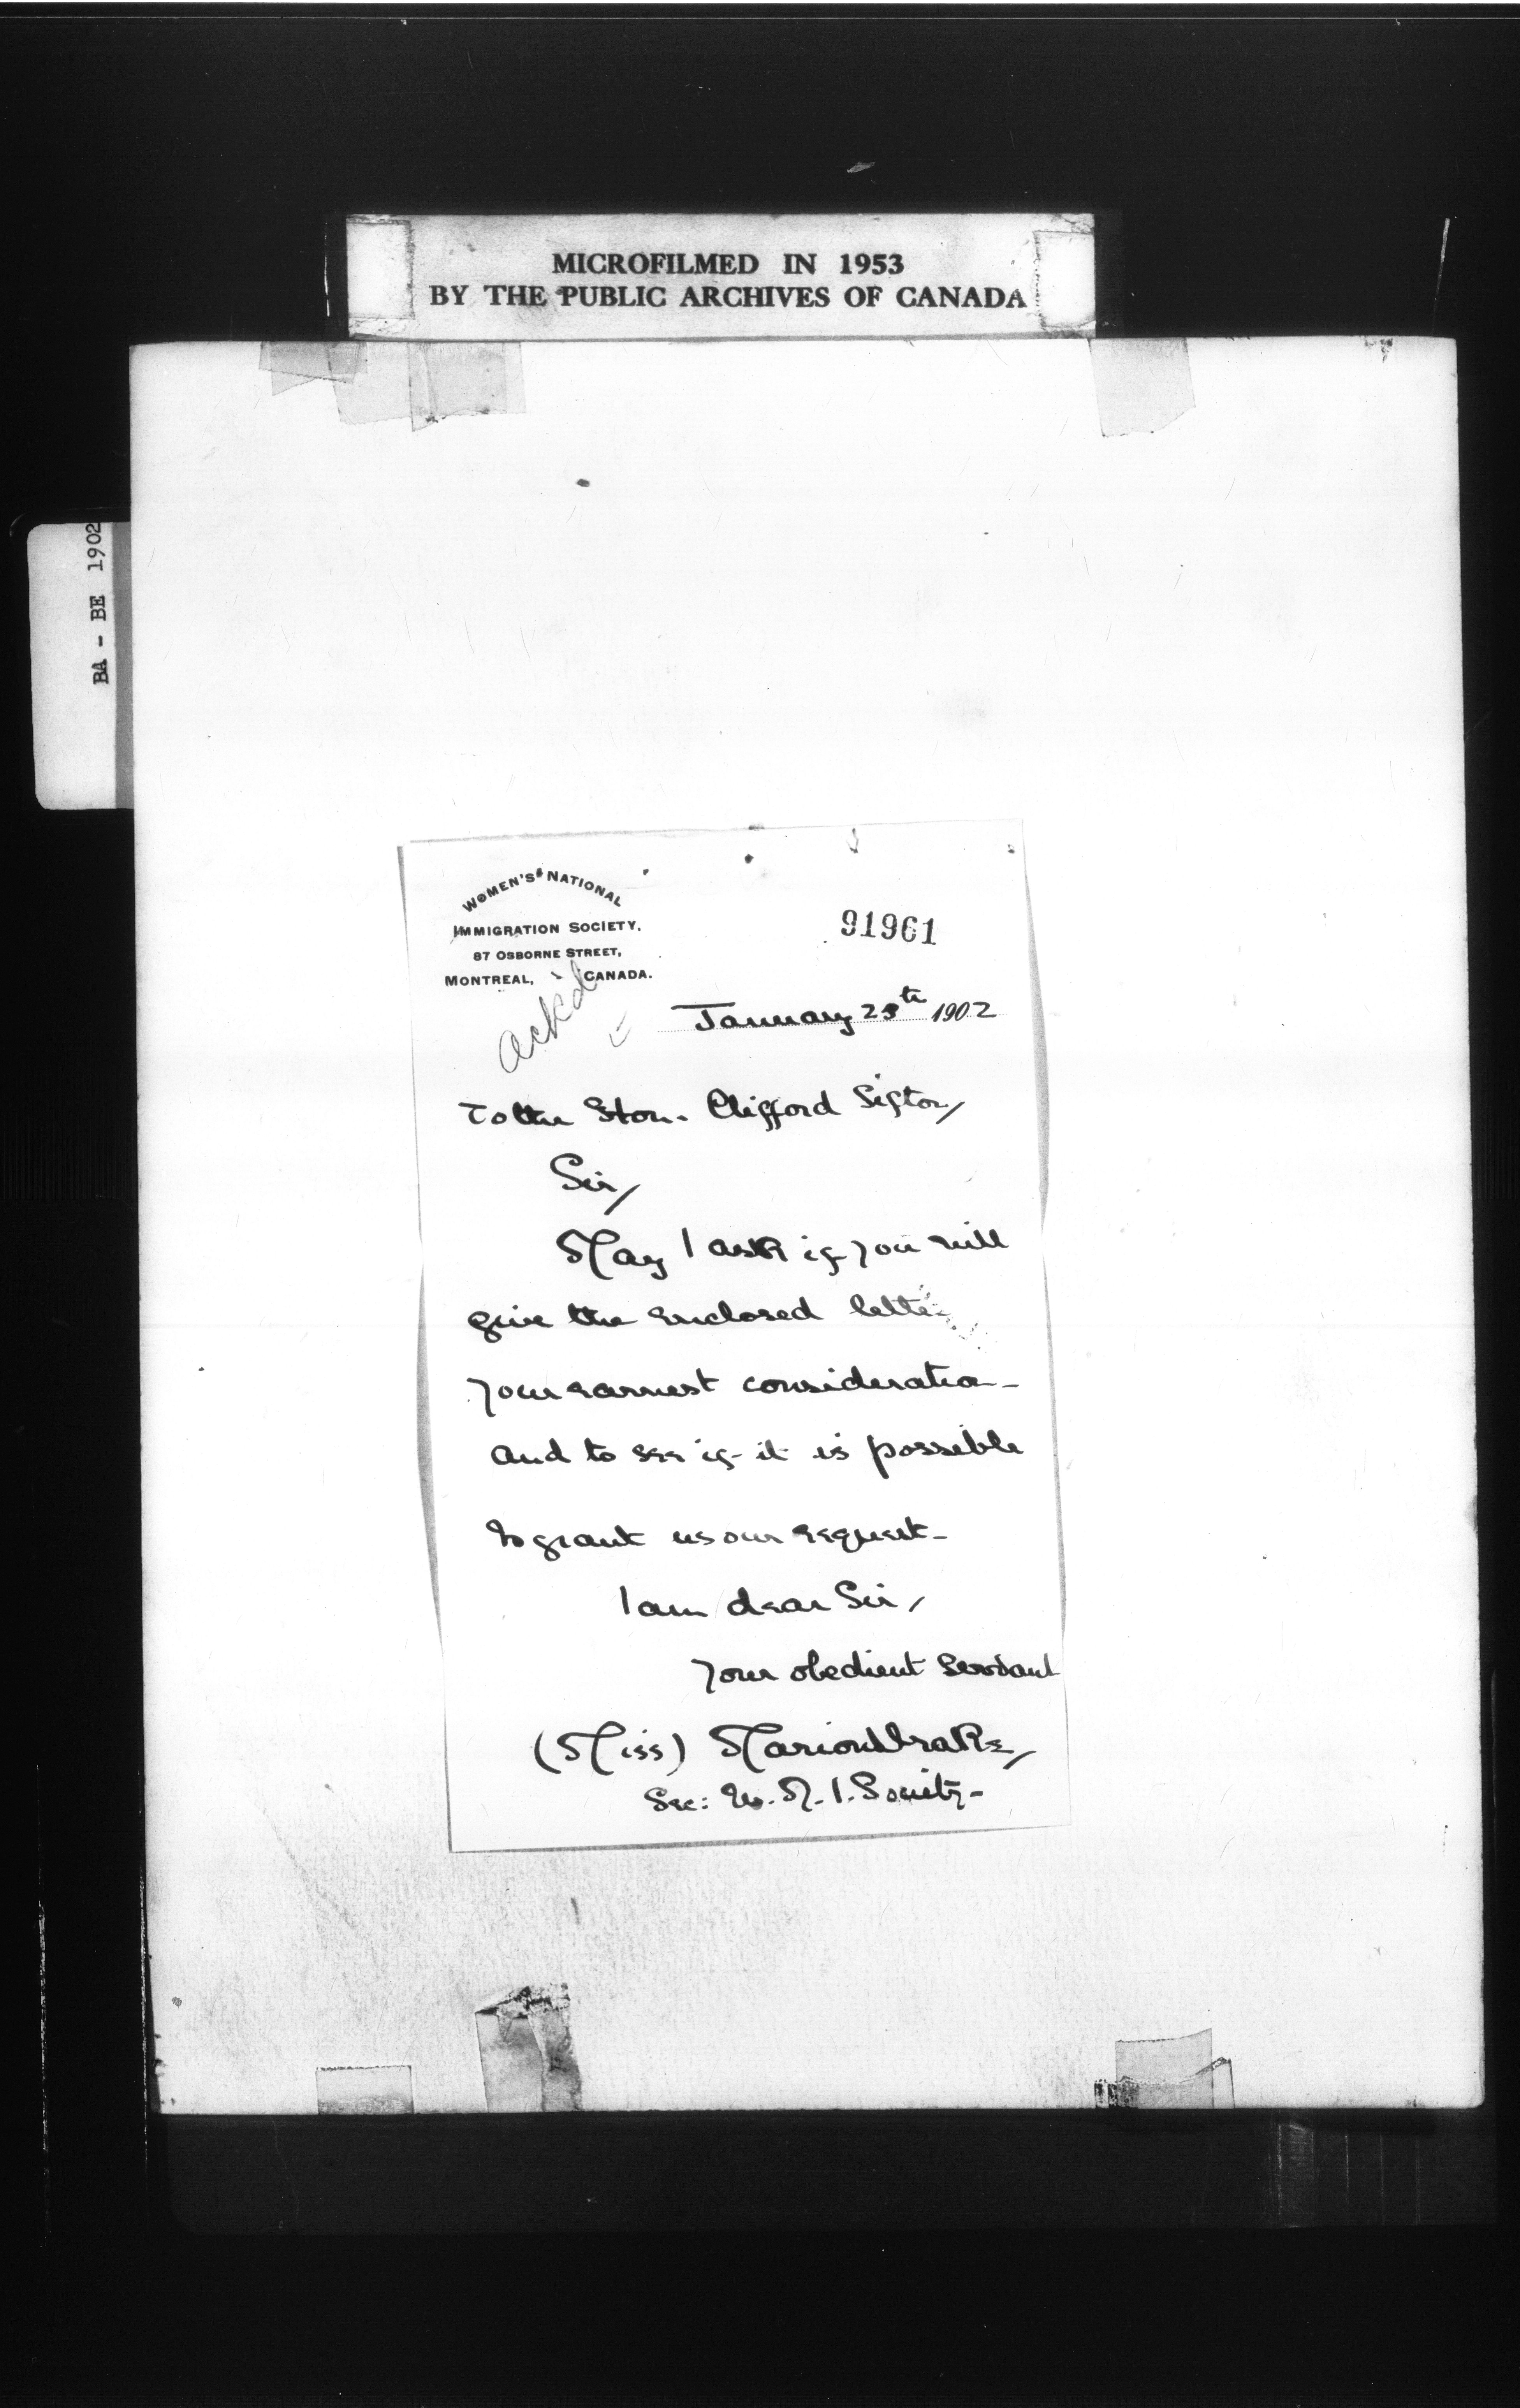 MICROFILMED IN 1953
BY THE PUBLIC ARCHIVES OF CANADA
BA - BE 1902
WOMEN'S NATIONAL
IMMIGRATION SOCIETY,
87 OSBORNE STREET,
MONTREAL, CANADA.
91961
ackd
January 25th 1902
To the Hon. Clifford Sifton,
Sir,
May I ask if you will
give the enclosed letter
your earnest consideration -
and to see if it is possible
to grant us our request -
I am dear Sir,
Your obedient Servant
(Miss) Marion Drake,
Sec: W. N. I. Society -